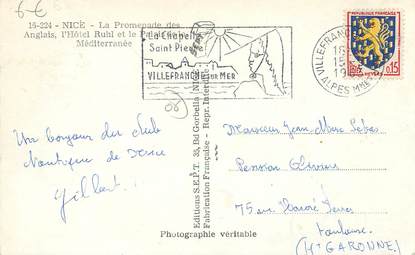 6-€
16-224 - NICE - La Promenade des
Anglais, l'Hôtel Ruhl et le Palais
Méditerranée
La Chapelle
Saint Pierre
VILLEFRANCHE SUR MER
VILLEFRANCHE
ALPES MMES
REPUBLIQUE FRANCAISE
0.15
06
Un bonjour du club
Nautique de Nice
Gilbert
Editions S.E.P.T. 35, Bd Gorbella (Nice)
Fabrication Française - Repr. Interdite
Monsieur Jean Marc
Pension
75 rue
Toulouse
(Hte GARONNE)
Photographie véritable